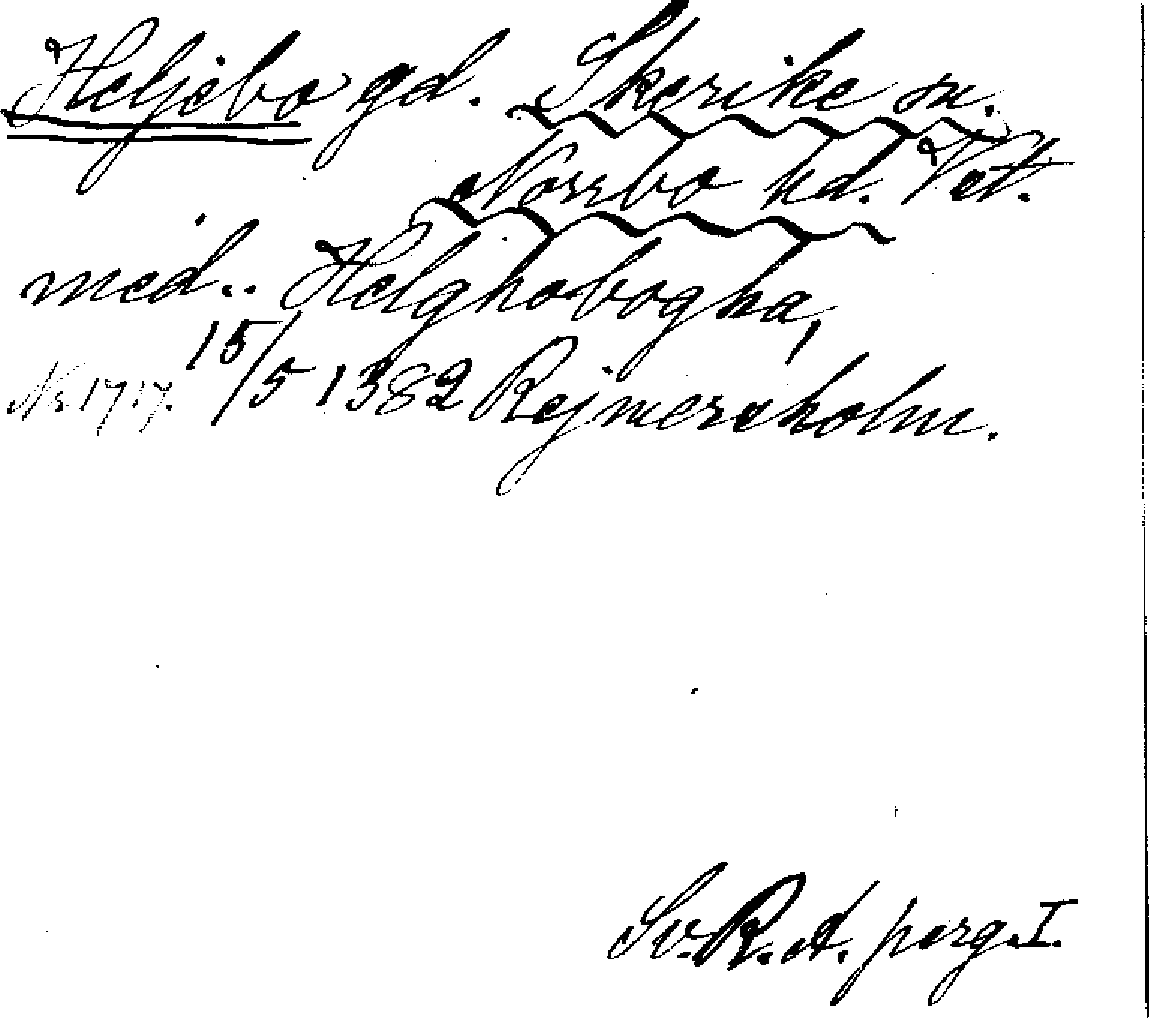 Heljebo gd. Skerike sn.
Norrbo hd. Vst.
med.. Helghobogha,
Nr. 1717. 15/5 1382 Rejmersholm.
Sv. R. A. perg. I.